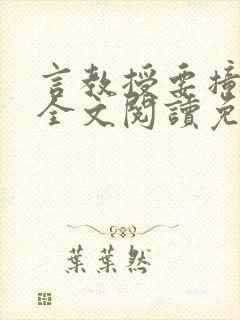 言教授要撞
全文閱讀免
葉葉然